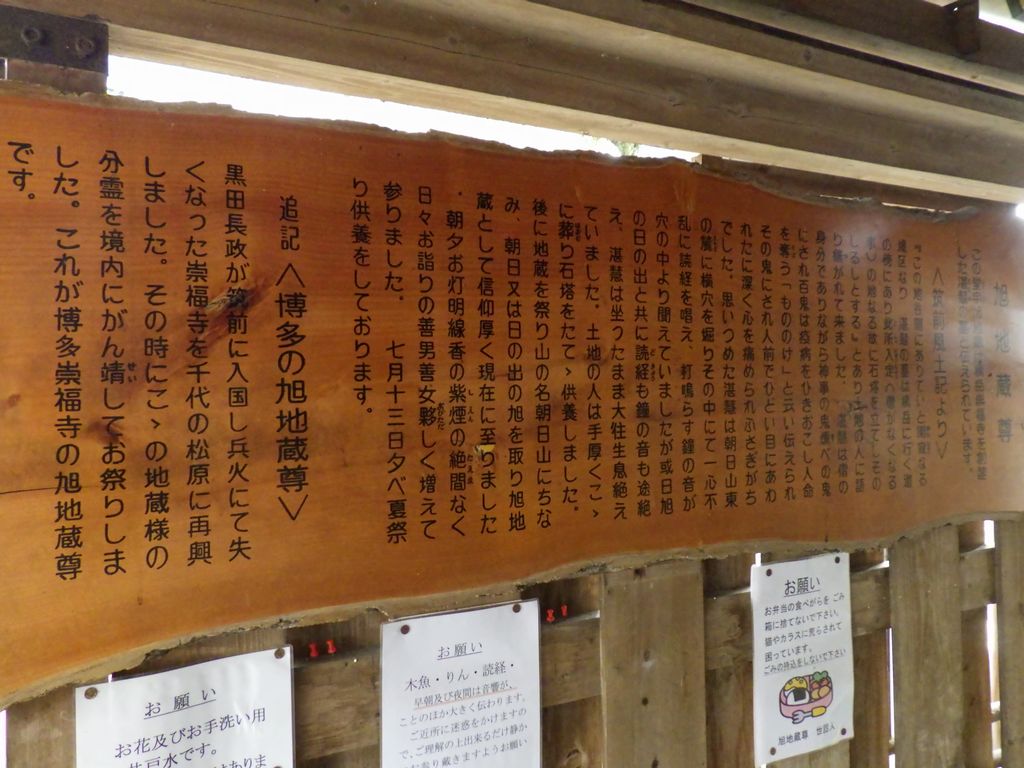 旭地蔵尊
この堂宇は
した湛慧の墓と伝えられています。
＜筑前風土記より＞
り痛がれて来ました。
身分でありながら神事の鬼
にされ百鬼は疫病をひきおこし人命
を奪う「もののけ」と云い伝えられ
その鬼にされ人前でひどい目にあわ
れたに深く心を痛められふさぎがち
でした。思いつめた湛慧は朝日山東
の麓に横穴を掘りその中にて一心不
乱に読経を唱え、釘鳴らす鐘の音が
穴の中より聞えてしたが或日旭
の日の出と共に読経も鐘の音も途絶
え、湛慧は坐ったまま大往生息絶え
ていました。土地の人は手厚くこゝ
に葬り石塔をたてゝ供養しました。
後に地蔵を祭り山の名朝日山にちな
み、朝日又は日の出の旭を取り旭地
蔵として信仰厚く現在に至りました
・朝夕お灯明線香の紫煙の絶間なく
日々お詣りの善男善女夥しく増えて
参りました。　七月十三日夕べ夏祭
り供養をしております。
追記＜博多の旭地蔵尊＞
黒田長政が筑前に入国し兵火にて失
くなった崇福寺を千代の松原に再興
しました。その時にこゝの地蔵様の
分霊を境内にがん靖してお祭りしま
した。これが博多崇福寺の旭地蔵尊
です。
お願い
お花及びお手洗い用
井戸水です。
お願い
木魚・りん・読経・
早朝及び夜間は音響が、
ことのほか大きく伝わります。
ご近所に迷惑をかけますの
で、ご理解の上出来るだけ静か
にお参り戴きますようお願い
お願い
お弁当の食べがらを ごみ
箱に捨てないで下さい。
猫やカラスに荒らされて
困っています。
ごみの持込をしないで下さい
旭地蔵尊 世話人